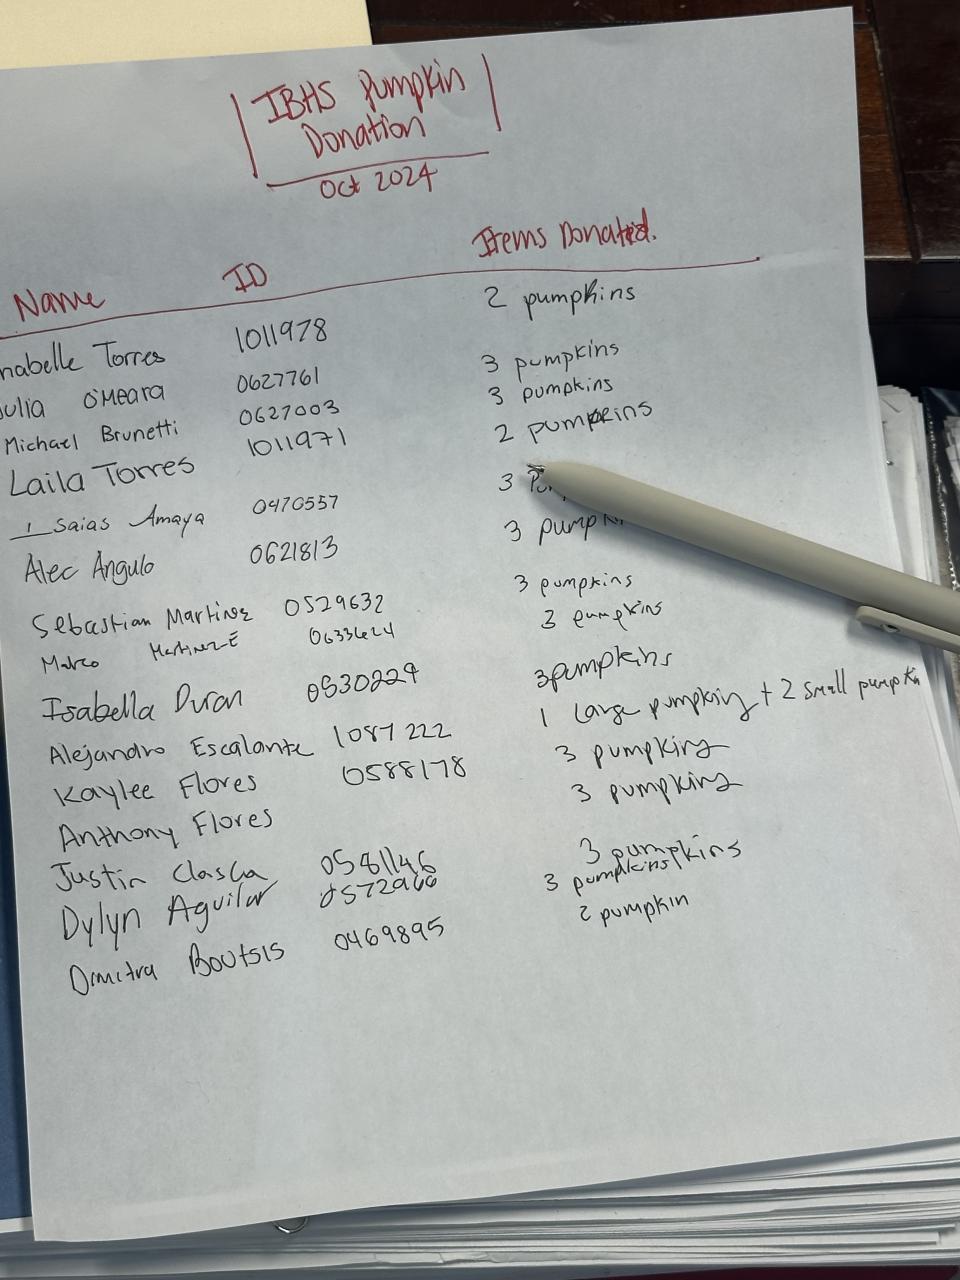 IBHS Pumpkin
Donation
Oct 2024
Name ID Items Donated.
nabelle Torres 1011978 2 pumpkins
ulia O'Meara 0627761 3 pumpkins
Michael Brunetti 0627003 3 pumpkins
Laila Torres 1011971 2 pumpkins
Isaias Amaya 0470557 3
Alec Angulo 0621813 3 pump
Sebastian Martinez 0529632 3 pumpkins
Marco Martinez 3 pumpkins
Isabella Duran 0530229 3 pumpkins
Alejandro Escalante 1087222 1 large pumpking + 2 small pumpkin
Kaylee Flores 0588178 3 pumpking
Anthony Flores 3 pumpking
Justin 0581146 3 pumpkins
Dylyn Aguilar 3 pumpkins
Dimitra Boutsis 0469895 2 pumpkin